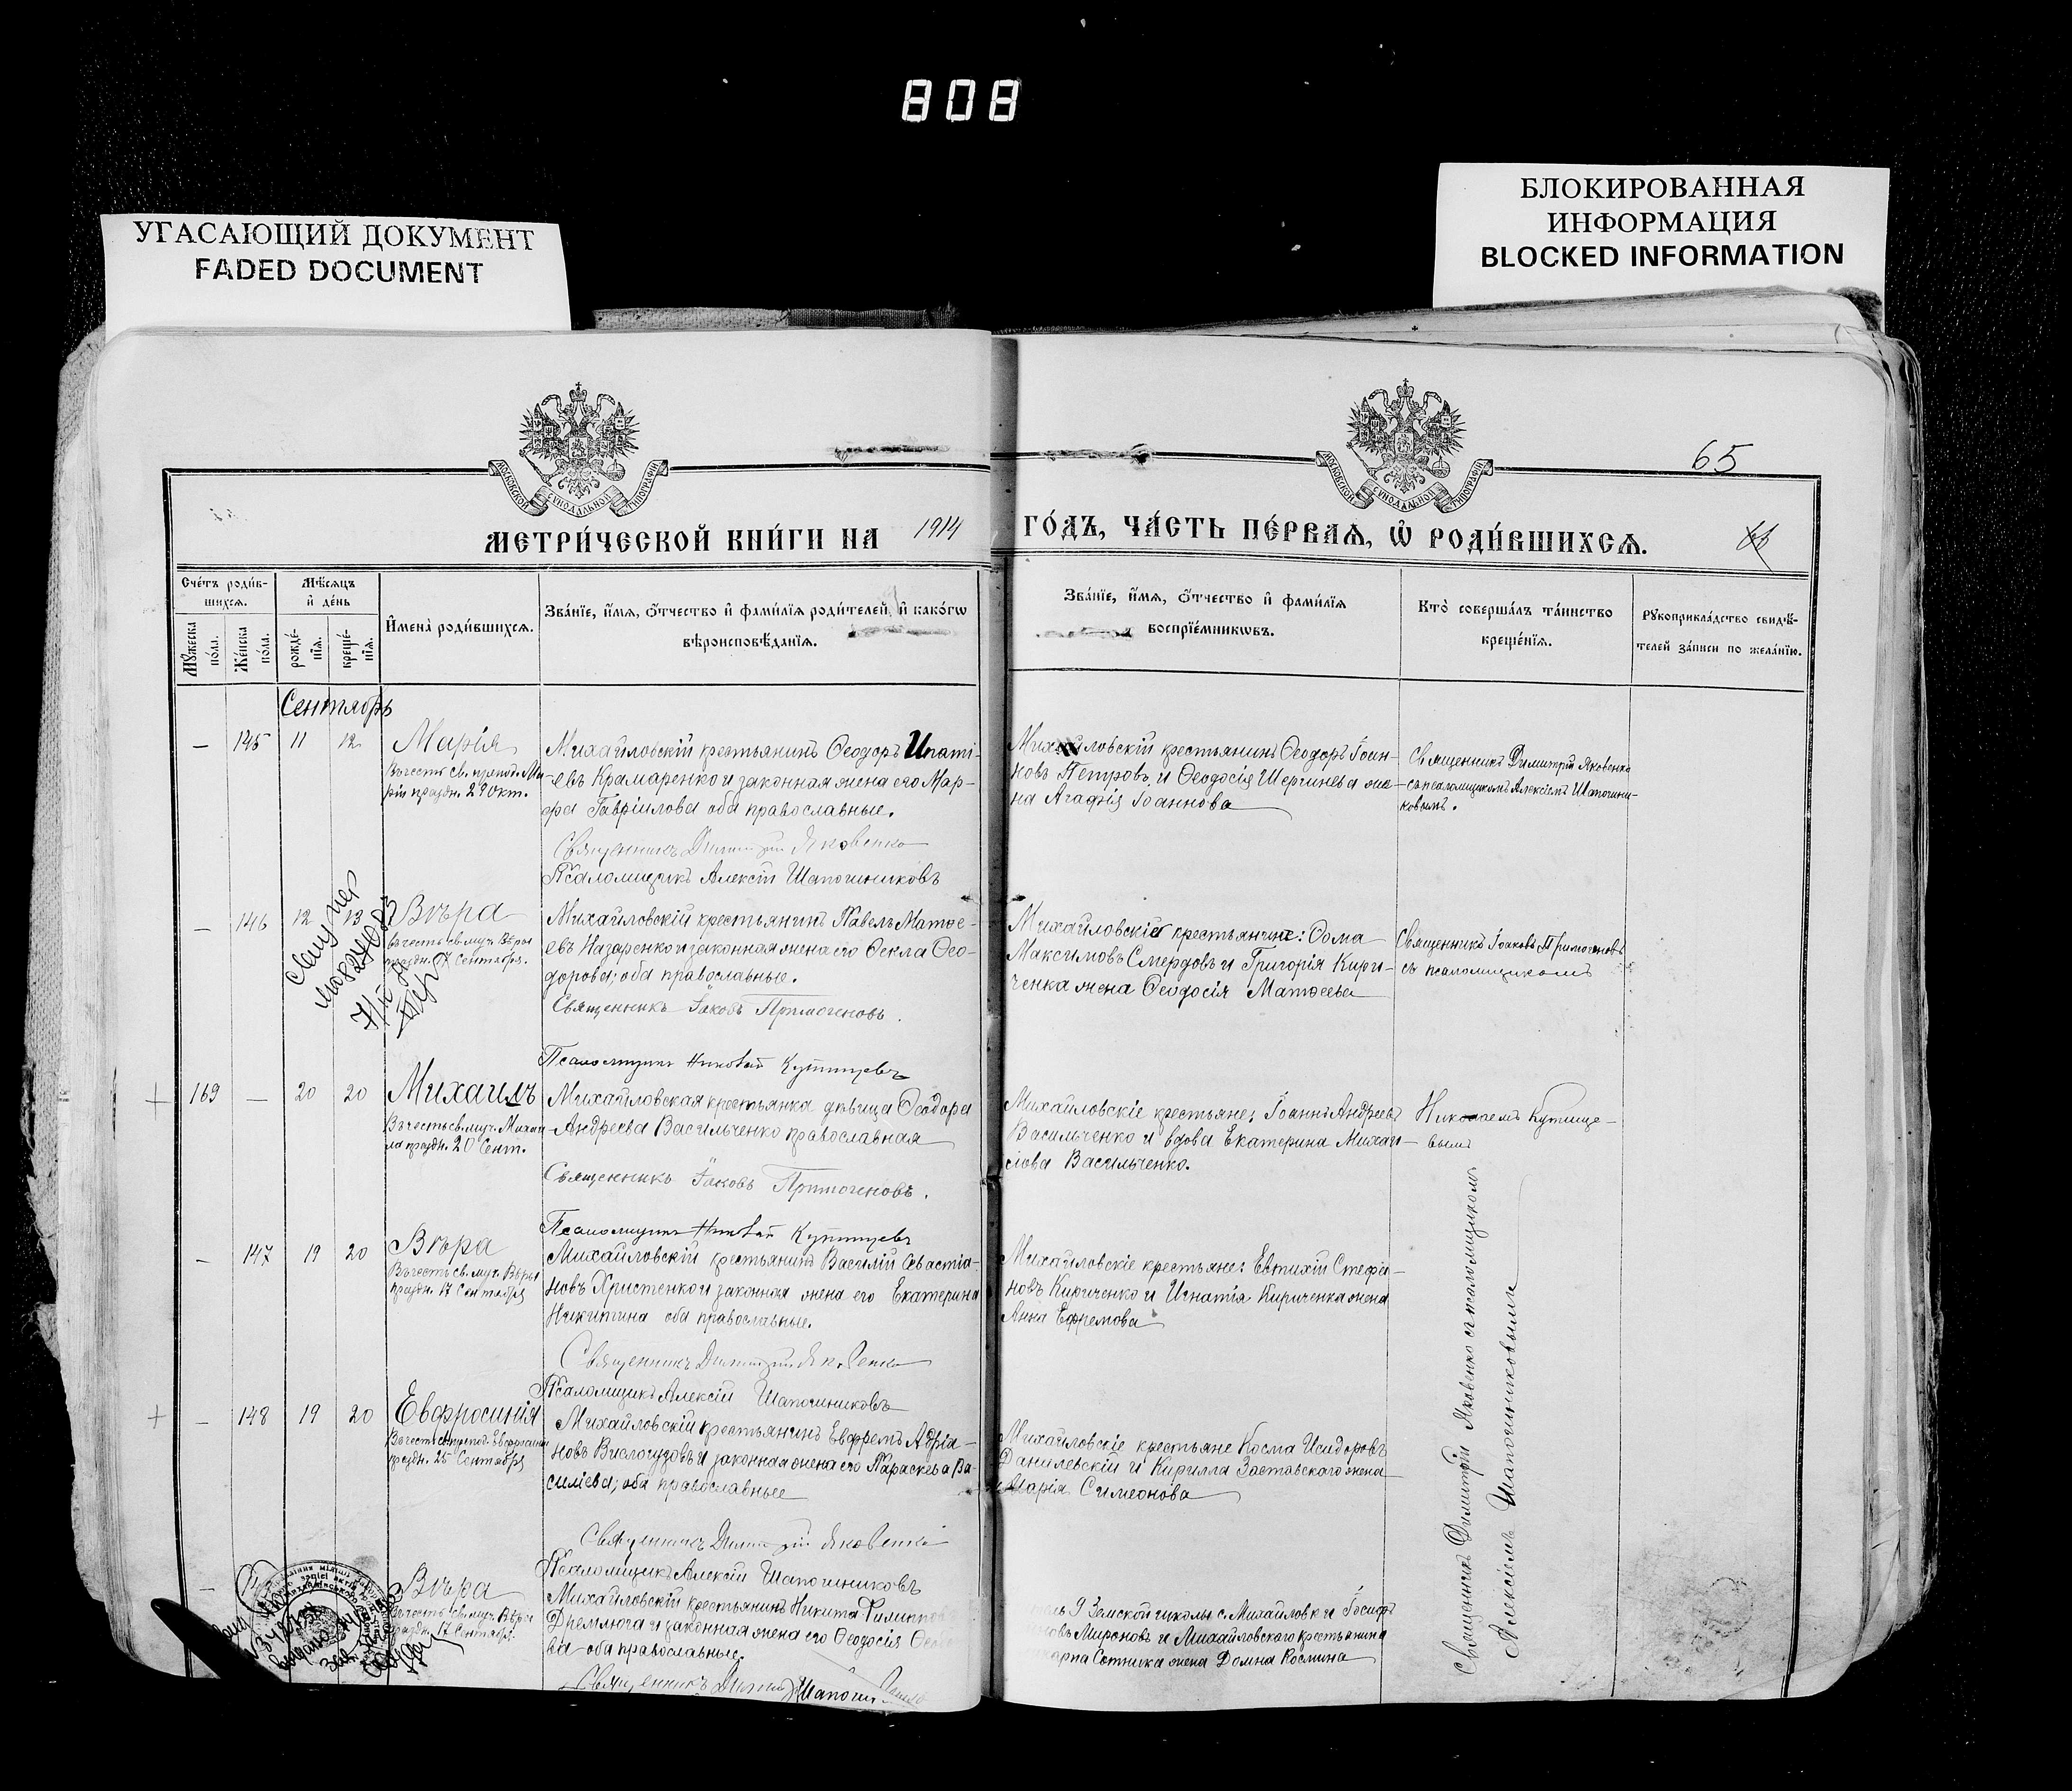 808
УГАСАЮЩИЙ ДОКУМЕНТ
FADED DOCUMENT
БЛОКИРОВАННАЯ
ИНФОРМАЦИЯ
BLOCKED INFORMATION
МОСКОВСКОЙ СУНОДАЛЬНОЙ ТИПОГРАФІИ
МОСКОВСКОЙ СУНОДАЛЬНОЙ ТИПОГРАФІИ
65
МЕТРИ́ЧЕСКОЙ КНИ́ГИ НА 1914 ГО́ДЪ, ЧА́СТЬ ПЕ́РВАѦ, Ѡ҆ РОДИ́ВШИХСѦ.
Сче́тъ роди́в-
шихсѧ.
Мꙋ́жеска по́ла.
Же́нска по́ла.
Мѣ́сѧцъ
и҆ де́нь
рожде́-
нїѧ.
креще́-
нїѧ.
И҆мена̀ роди́вшихсѧ.
Зва́нїе, и҆́мѧ, ѻ҆́тчество и҆ фами́лїѧ роди́телей, и҆ како́гѡ
вѣроисповѣ́данїѧ.
Зва́нїе, и҆́мѧ, ѻ҆́тчество и҆ фами́лїѧ
воспрїе́мникѡвъ.
Кто̀ соверша́лъ та́инство
креще́нїѧ.
Рꙋкоприкла́дство свидѣ́-
телей за́писи по жела́нїю.
Сентябрь
— 145 11 12 Марія
Въ честь св. препод. Ма-
ріи праздн. 29 Окт.
Михайловскій крестьянинъ Ѳеодоръ Ипаті-
евъ Крамаренко и законная жена его Мар-
ѳа Гавріилова оба православные.
Священникъ Димитрій Яковенко
Псаломщикъ Алексій Шапошниковъ
Михайловскій крестьянинъ Ѳеодоръ Іоан-
новъ Петровъ, и Ѳеодосія Шергинева же-
на Агаѳія Іоаннова
Священникъ Димитрій Яковенко
съ псаломщикомъ Алексіемъ Шапошни-
ковымъ.
— 146 12 13 Вѣра
въ честь св. муч. Вѣры
праздн. 17 Сентября.
Михайловскій крестьянинъ Павелъ Матѳе-
евъ Назаренко и законная жена его Ѳекла Ѳео-
дорова, оба православные.
Священникъ Іаковъ Примогеновъ.
Псаломщикъ Николай Кутищевъ
Михайловскіе крестьяне: Ѳома
Максимовъ Смердовъ и Григорія Кири-
ченка жена Ѳеодосія Матѳеева
Священникъ Іоаковъ Примогеновъ
съ псаломщикомъ
169 — 20 20 Михаилъ
Въ честь св. муч. Михаи-
ла праздн. 20 Сент.
Михайловская крестьянка дѣвица Ѳеодора
Андреева Васильченко православная
Священникъ Іаковъ Примогеновъ.
Псаломщикъ Николай Кутищевъ
Михайловскіе крестьяне: Іоаннъ Андреевъ
Васильченко и вдова Екатерина Михаи-
лова Васильченко.
Николаемъ Кутище-
вымъ
— 147 19 20 Вѣра
Въ честь св. муч. Вѣры
праздн. 17 Сентября
Михайловскій крестьянинъ Василій Севастіа-
новъ Христенко и законная жена его Екатерина
Никитина оба православные.
Священникъ Димитрій Яковенко
Псаломщикъ Алексій Шапошниковъ
Михайловскіе крестьяне: Евтихій Стефа-
новъ Кириченко и Игнатія Кириченка жена
Анна Ефремова
— 148 19 20 Евфросинія
Въ честь св. препод. Евфросиніи
праздн. 25 Сентября
Михайловскій крестьянинъ Евфремъ Адріа-
новъ Вислогузовъ и законная жена его Параскева Ва-
силіева, оба православные
Священникъ Димитрій Яковенко
Псаломщикъ Алексій Шапошниковъ
Михайловскіе крестьяне Косма Исидоровъ
Данилевскій и Кирилла Заставскаго жена
Марія Симеонова
Священникъ Димитрій Яковенко съ псаломщикомъ
Алексіемъ Шапошниковымъ
Вѣра
Въ честь св. муч. Вѣры
праздн. 17 Сентября.
Михайловскій крестьянинъ Никита
Дремлюга и законная жена его Ѳеодосія
ва оба православные.
Священникъ
9 Земской школы с. Михайловки Іосифъ
Мироновъ и Михайловскаго крестьянина
Сотника жена Домна Космина